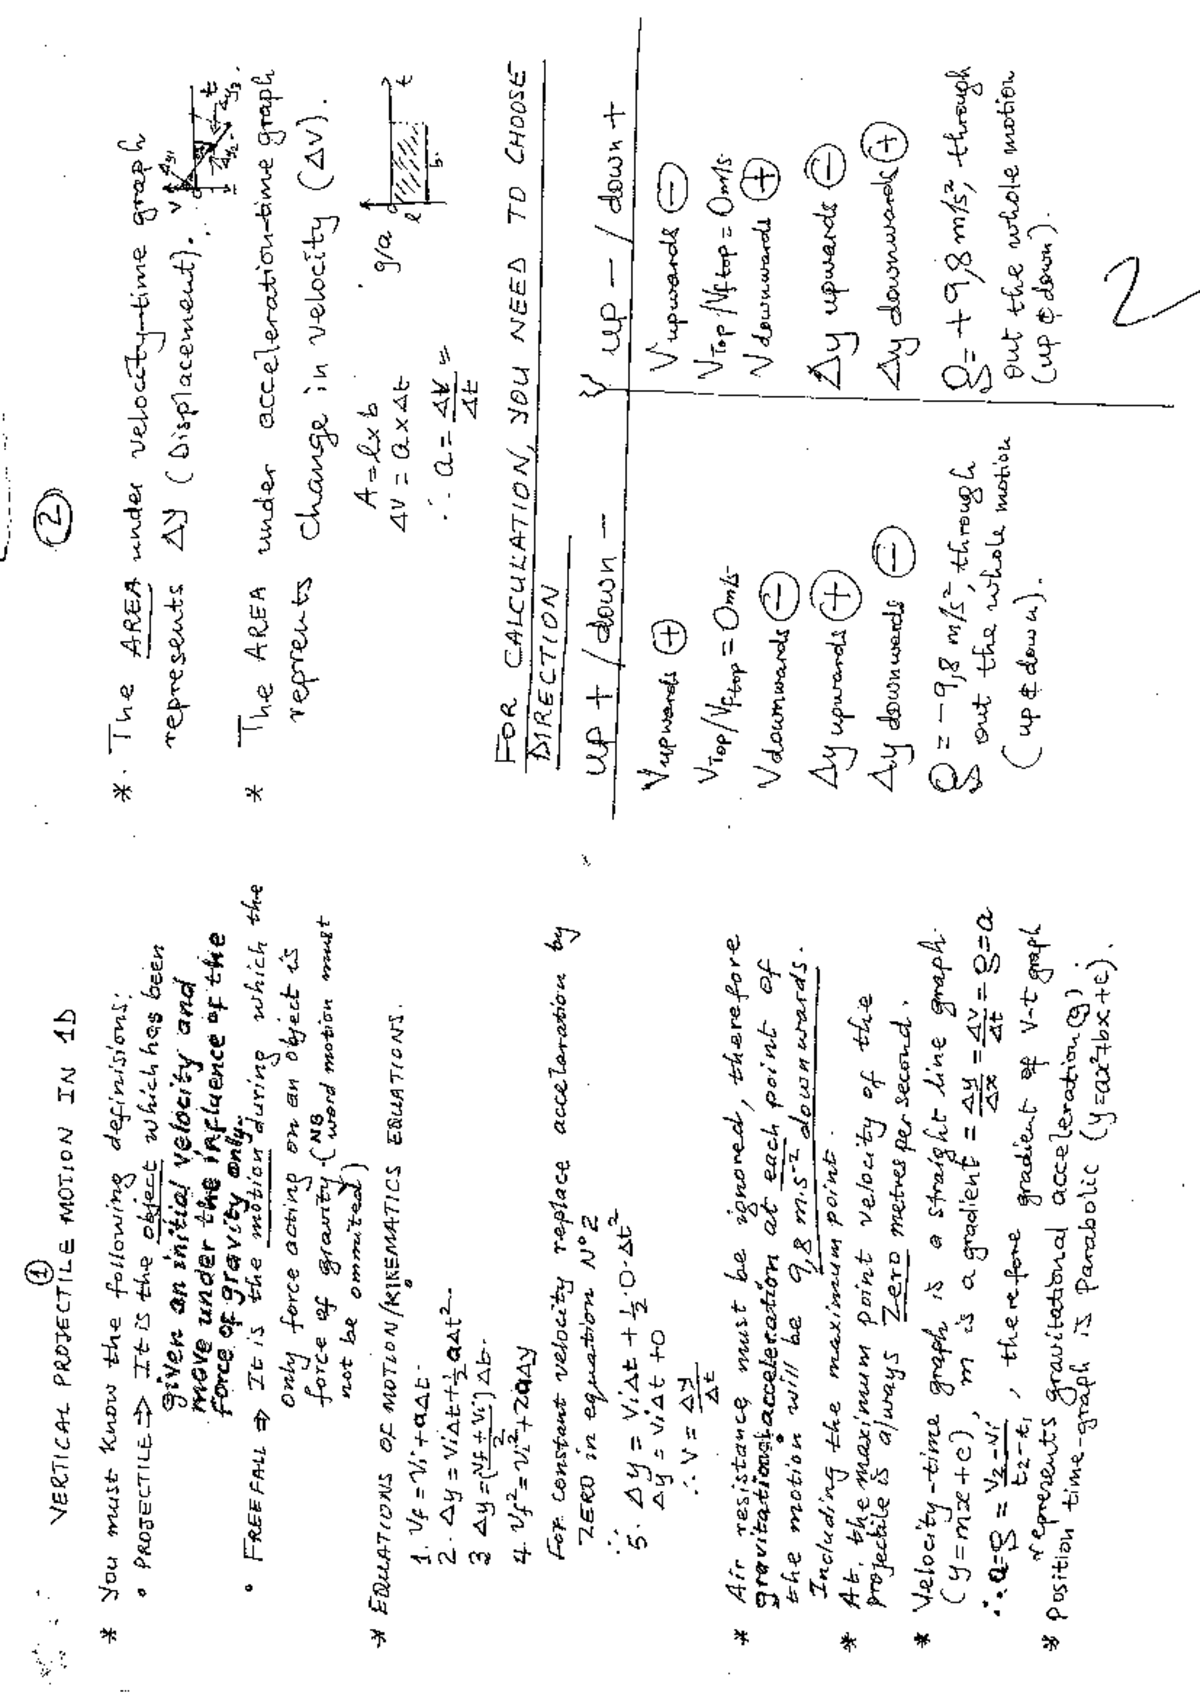 ①
VERTICAL PROJECTILE MOTION IN 1D
* You must know the following definisions:
• PROJECTILE => It is the object which has been
given an initial velocity and
move under the influence of the
force of gravity only.
• FREEFALL => It is the motion during which the
only force acting on an object is
force of gravity. (NB word motion must
not be ommited)
* EQUATIONS OF MOTION/KINEMATICS EQUATIONS.
1. Vf = Vi + aΔt.
2. Δy = ViΔt + ½aΔt².
3 Δy = (Vf + Vi / 2) Δt.
4. Vf² = Vi² + 2aΔy
For constant velocity replace acceleration by
ZERO in equation N° 2
∴
5. Δy = ViΔt + ½·0·Δt²
Δy = ViΔt + 0
∴ V = Δy/Δt
* Air resistance must be ignored, therefore
gravitational acceleration at each point of
the motion will be 9,8 m.s⁻² downwards.
Including the maximum point.
* At. the maximum point velocity of the
projectile is always Zero metres per second.
* Velocity-time graph is a straight line graph.
(y = mx + c), m is a gradient = Δy/Δx = Δv/Δt = g = a
∴ a = g = V₂ - Vi / t₂ - t₁, therefore gradient of v-t graph
represents gravitational acceleration (g).
* Position time-graph is Parabolic (y = ax² + bx + c).
②
*. The AREA under velocity-time graph
represents Δy (Displacement).
v Δy₁
t
Δy₂ Δy₃.
* The AREA under acceleration-time graph
reprents change in velocity (ΔV).
A = l x b
ΔV = a x Δt
∴ a = ΔV/Δt =
g/a
l
b.
t
FOR CALCULATION, YOU NEED TO CHOOSE
DIRECTION
UP + / down -
V upwards ⊕
V Top / Vf top = 0 m/s
V downwards ⊖
Δy upwards ⊕
Δy downwards ⊖
g = -9,8 m/s², through
out the whole motion
(up & down).
UP - / down +
V upwards ⊖
V Top / Vf top = 0 m/s
V downwards ⊕
Δy upwards ⊖
Δy downwards ⊕
g = +9,8 m/s², through
out the whole motion
(up & down).
2